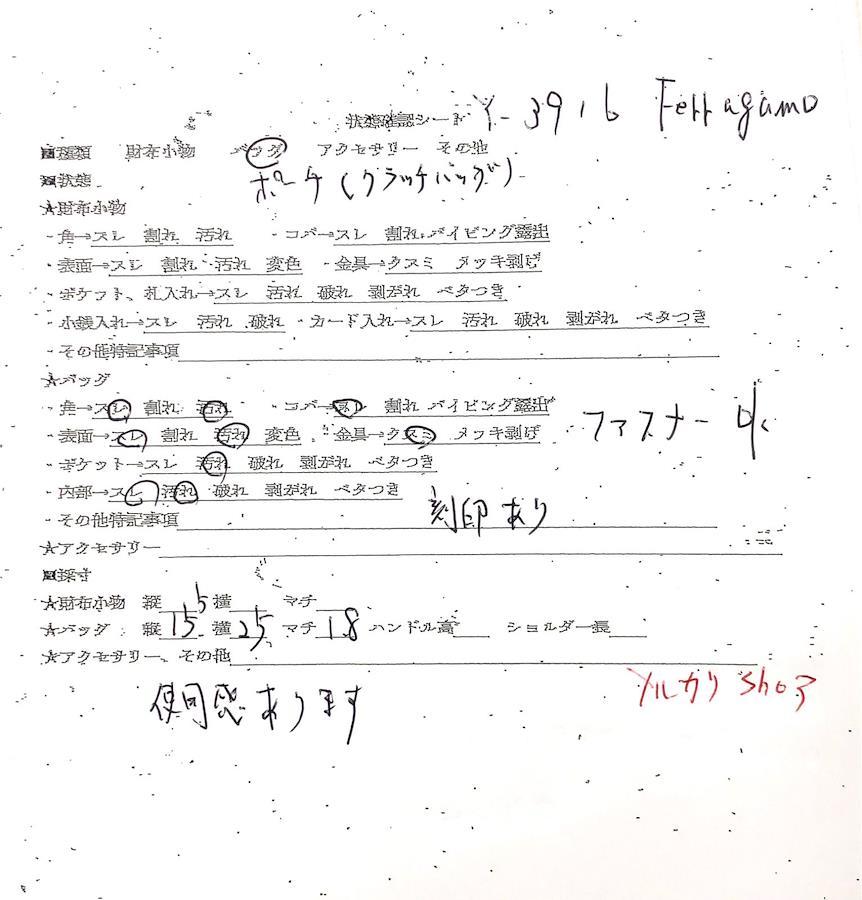 Y-3916 Ferragamo
状態確認シート
■種類 財布小物 バッグ アクセサリー その他
■状態 ポーチ(クラッチバッグ)
★財布小物
・角→スレ 割れ 汚れ ・コバ→スレ 割れ パイピング露出
・表面→スレ 割れ 汚れ 変色 ・金具→クスミ メッキ剥げ
・ポケット、札入れ→スレ 汚れ 破れ 剥がれ ベタつき
・小銭入れ→スレ 汚れ 破れ ・カード入れ→スレ 汚れ 破れ 剥がれ ベタつき
・その他特記事項
★バッグ
・角→スレ 割れ 汚れ ・コバ→スレ 割れ パイピング露出
・表面→スレ 割れ 汚れ 変色 ・金具→クスミ メッキ剥げ
ファスナー
・ポケット→スレ 汚れ 破れ 剥がれ ベタつき
・内部→スレ 汚れ 破れ 剥がれ ベタつき
・その他特記事項 刻印あり
★アクセサリー
■採寸
★財布小物 縦 横 マチ
★バッグ : 縦 15.5 横 25 マチ 1.8 ハンドル高 ショルダー長
★アクセサリー、その他
メルカリ shop
使用感あります